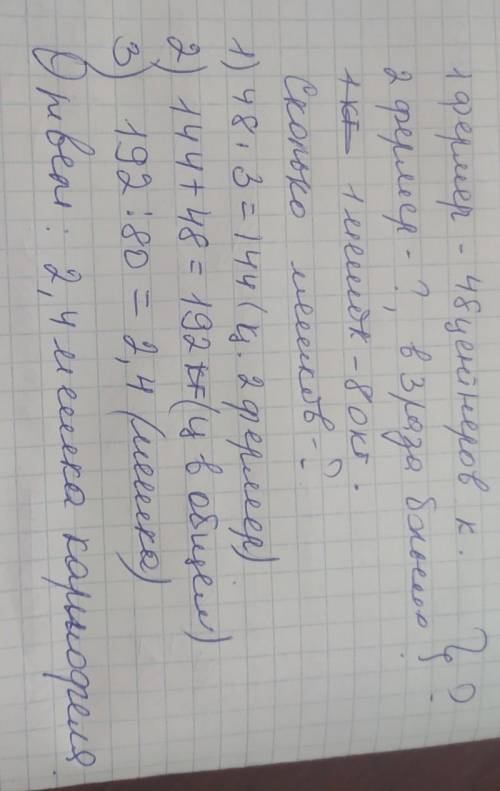 1 фермер - 48 центнеров к.
2 фермер - ?, в 3 раза больше } ?
1 кг 1 мешок - 80 кг.
Сколько мешков - ?
1) 48 · 3 = 144 (ц. 2 фермер)
2) 144 + 48 = 192 кг (ц в общем)
3) 192 : 80 = 2,4 (мешка)
Ответ: 2,4 мешка картофеля.